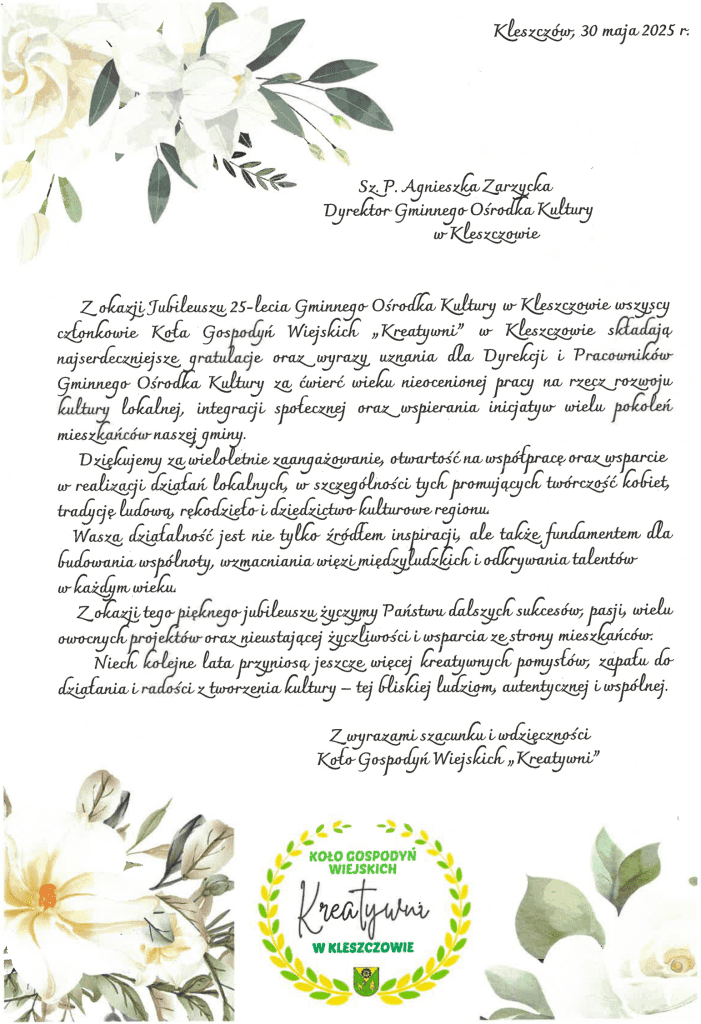 Kleszczów, 30 maja 2025 r.
Sz. P. Agnieszka Zarzycka
Dyrektor Gminnego Ośrodka Kultury
w Kleszczowie
Z okazji Jubileuszu 25-lecia Gminnego Ośrodka Kultury w Kleszczowie wszyscy
członkowie Koła Gospodyń Wiejskich „Kreatywni” w Kleszczowie składają
najserdeczniejsze gratulacje oraz wyrazy uznania dla Dyrekcji i Pracowników
Gminnego Ośrodka Kultury za ćwierć wieku nieocenionej pracy na rzecz rozwoju
kultury lokalnej, integracji społecznej oraz wspierania inicjatyw wielu pokoleń
mieszkańców naszej gminy.
Dziękujemy za wieloletnie zaangażowanie, otwartość na współpracę oraz wsparcie
w realizacji działań lokalnych, w szczególności tych promujących twórczość kobiet,
tradycję ludową, rękodzieło i dziedzictwo kulturowe regionu.
Wasza działalność jest nie tylko źródłem inspiracji, ale także fundamentem dla
budowania wspólnoty, wzmacniania więzi międzyludzkich i odkrywania talentów
w każdym wieku.
Z okazji tego pięknego jubileuszu życzymy Państwu dalszych sukcesów, pasji, wielu
owocnych projektów oraz nieustającej życzliwości i wsparcia ze strony mieszkańców.
Niech kolejne lata przyniosą jeszcze więcej kreatywnych pomysłów, zapału do
działania i radości z tworzenia kultury – tej bliskiej ludziom, autentycznej i wspólnej.
Z wyrazami szacunku i wdzięczności
Koło Gospodyń Wiejskich „Kreatywni”
KOŁO GOSPODYŃ
WIEJSKICH
Kreatywni
W KLESZCZOWIE